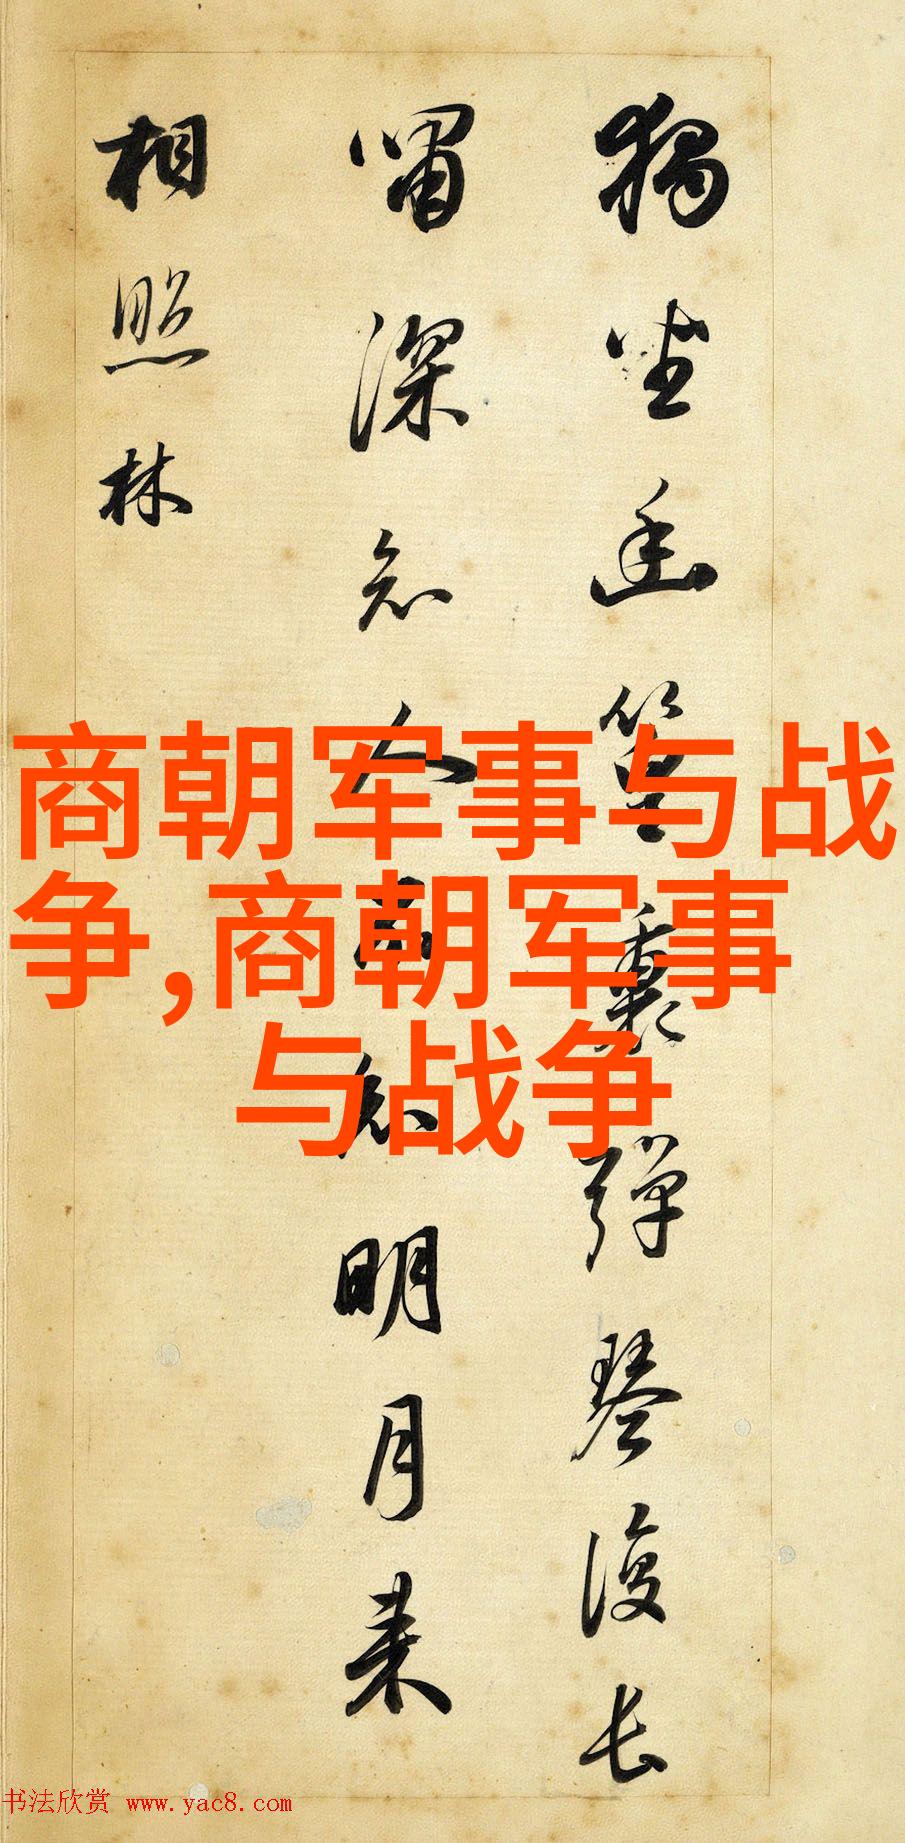 獨坐幽篁裏彈琴復長
嘯深知人不知明月来
相照林
商朝军事与战
争,商朝军事
与战争
书法欣赏 www.yac8.com